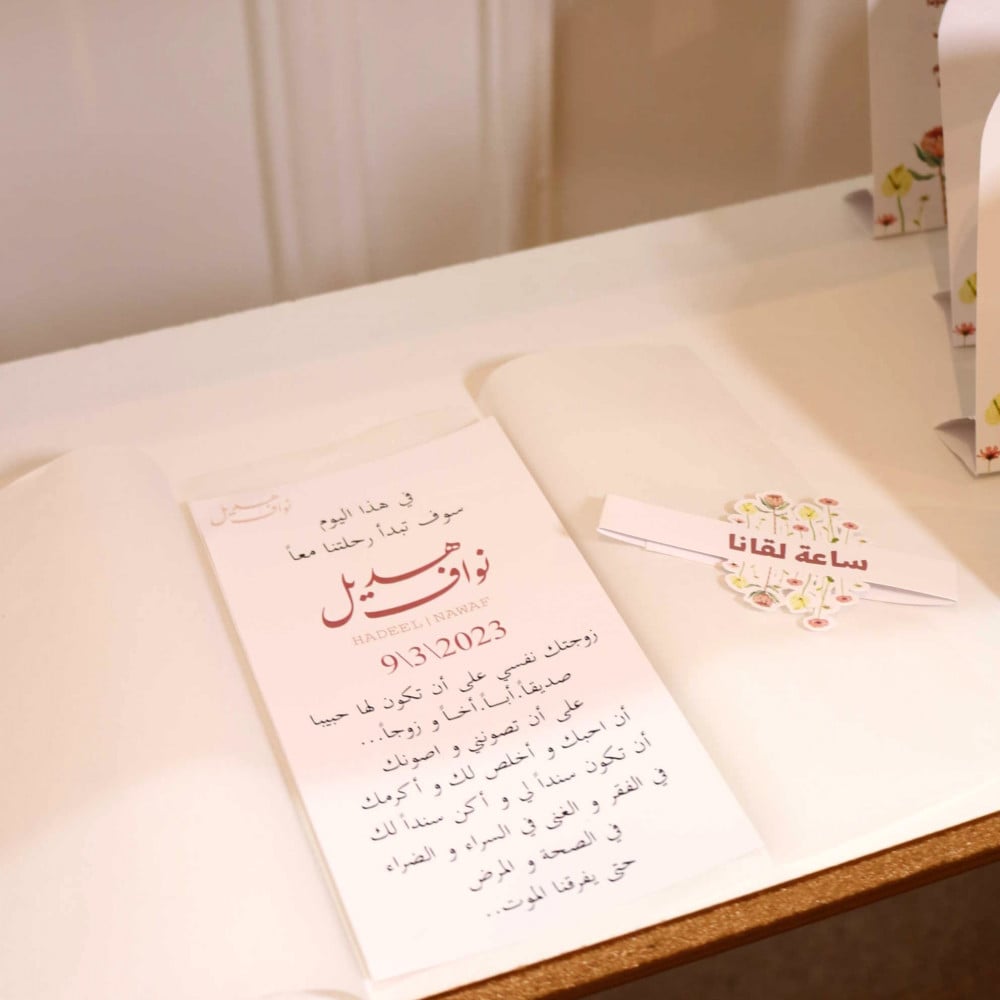 نواف هديل
في هذا اليوم
سوف تبدأ رحلتنا معاً
نواف هديل
HADEEL | NAWAF
9\3\2023
زوجتك نفسي على أن تكون لها حبيبا
صديقاً.أبـاً.أخـاً و زوجاً...
على أن تصونني و اصونك
أن احبك و أخلص لك و أكرمك
أن تكون سنداً لي و أكن سنداً لك
في الفقر و الغنى في السراء و الضراء
في الصحة و المرض
حتى يفرقنا الموت..
ساعة لقانا